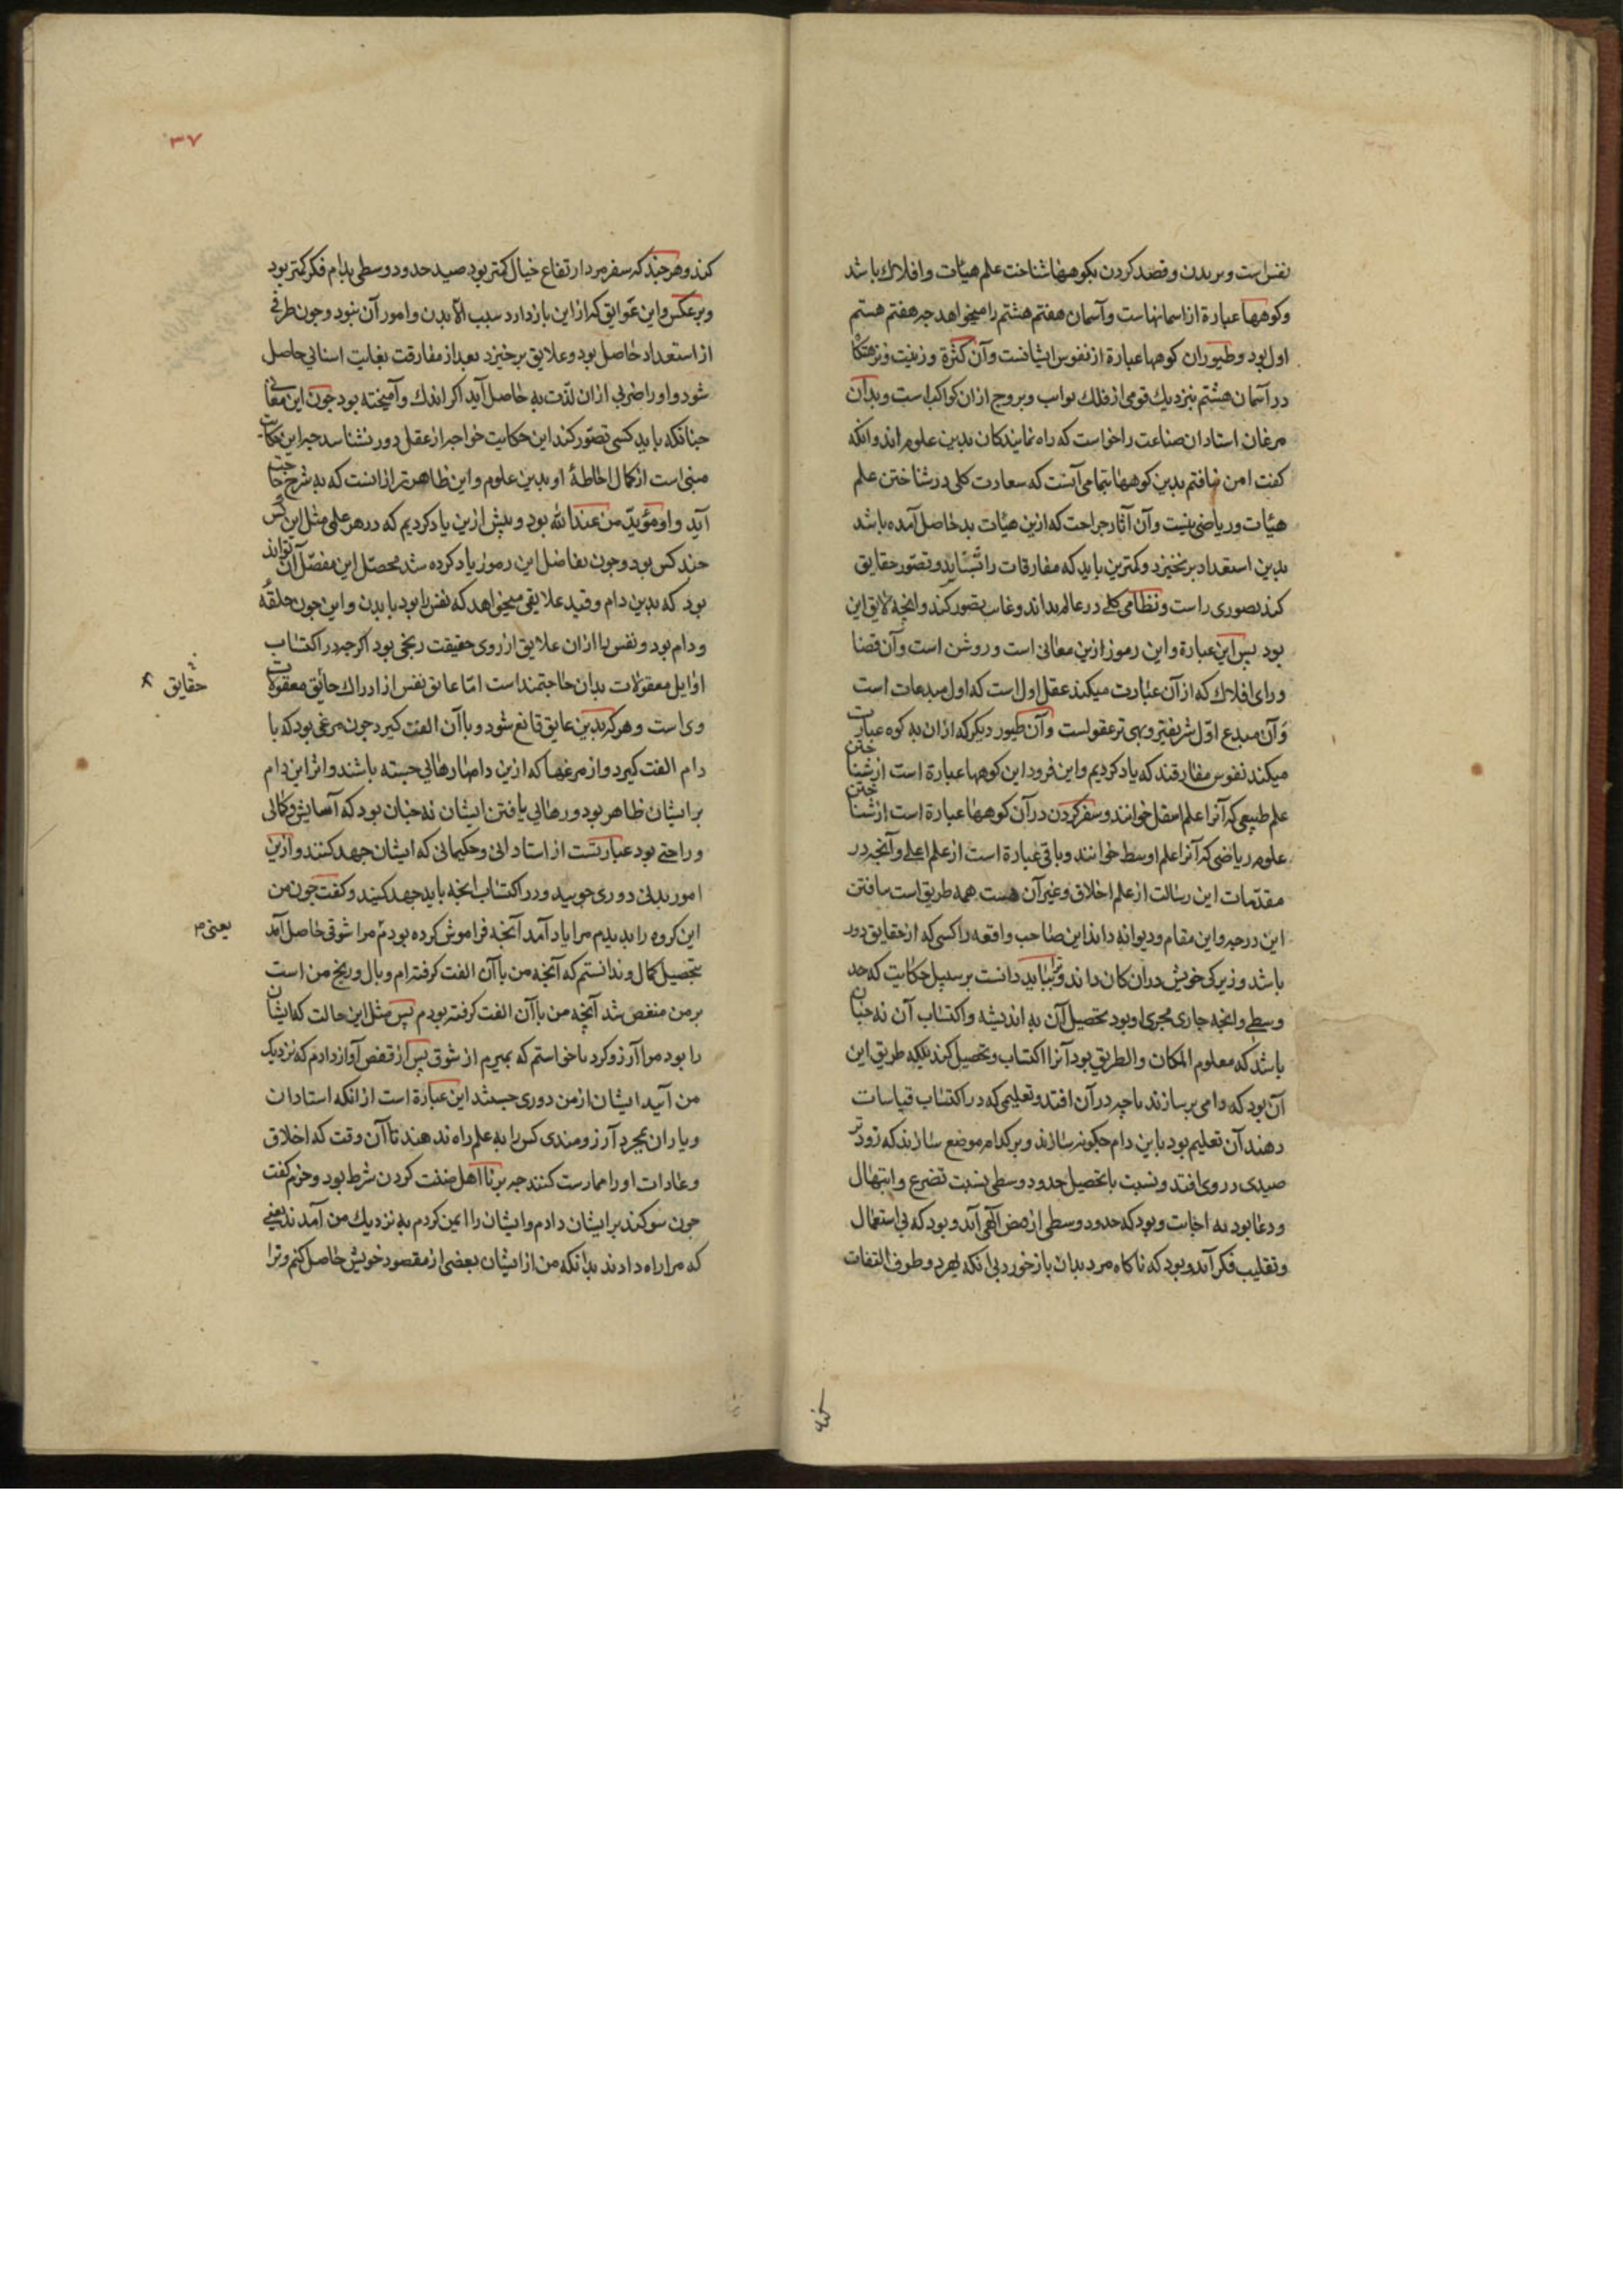 نفس است و بریدن و قصد کردن بکوهها شناخت علم هیأت و افلاك باشد
و کوهها عبارة از اسمانهاست و آسمان هفتم هشتم را میخواهد جه هفتم هستم
اول بود و طیور ان کوهها عبارة از نفوس ایشانست و آن کثرة و زینت و نزهتکا
در آسمان هشتم بنزدیك قومی از فلك ثوابت و بروج از ان کواکب است و بدان
مرغان استادان صناعت را خواست که راه نمایندکان بدین علوم اند و انکه
کفت امن نیافتم بدین کوهها بتمامی آنست که سعادت کلی در شناختن علم
هیأت و ریاضی نیست و آن آثار جراحت که ازین هیأت بد حاصل آمده باشد
بدین استعداد برنخیزد و کمترین باید که مفارقات را بشناید و تصور حقایق
کند تصوری راست و نظامی کلی در عالم بداند و غایت تصور کند و انجه لایق این
بود پس این عبارة و این رموز ازین معانی است و روشن است و آن قضا
ورای افلاك که از آن عبارت میکند عقل اول است که اول مبدعات است
و آن مبدع اول شریفتر و بهی تر عقولست و آن طیور دیکر که از ان به کوه عبارت
میکند نفوس مفارقند که یاد کردیم و این فرود این کوهها عبارة است از شناختن
علم طبیعی که آنرا علم اسفل خوانند و سفر کردن در آن کوهها عبارة است از شناختن
علوم ریاضی که آنرا علم اوسط خوانند و باقی عبارة است از علم اعلی و آنجه در
مقدمات این رسالت از علم اخلاق و غیر آن هست همه طریق است بیافتن
این درجه و این مقام و دیوانه داند این صاحب واقعه را کسی که از حقایق دور
باشد و زیرکی خویش در ان کان داند و بباید دانست بر سبیل حکایت که حد
وسطی و انجه جاری مجری او بود تحصیل آن به اندیشه و اکتساب آن نه جنان
باشد که معلوم المکان و الطریق بود آنرا اکتساب و تحصیل کند بلکه طریق این
آن بود که دامی بر سازند تا جه در آن افتد و تعلیمی که در اکتساب قیاسات
دهند آن تعلیم بود با این دام جکونه سازند و بر کدام موضع سازند که زودتر
صیدی در وی افتد و نسبت با تحصیل حدود وسطی نسبت تضرع و ابتهال
و دعا بود به اجابت و بود که حدود وسطی از فیض الهی آید و بود که بی استعمال
و تقلیب فکر آید و بود که ناکاه مرد بدان باز خورد بی انکه بهرد و طرف التفات
کند
۳۷
کند و هر جند که سفر مرد ارتفاع خیال کمتر بود صید حدود وسطی بدام فکر کمتر بود
و بر عکس و این عوایق که از این باز دارد سبب الا بدن و امور آن نبود و جون طرفی
از استعداد حاصل بود و علایق برخیزد بعد از مفارقت بغایت اسانی حاصل
شود و او را ضربی از ان لذت به حاصل آید اکر اندك و آمیخته بود جون این معانی
جنانکه باید کسی تصور کند این حکایت خواجه از عقل دور نشناسد جه این حکایت
مبنی است از کمال احاطهٔ او بدین علوم و این ظاهرتر از انست که به شرح حاجت
آید و او مؤید من عند الله بود و پیش ازین یاد کردیم که در هر علمی مثل این کس
جند کس بود و جون تفاضل این رموز یاد کرده شد محصل این مفصل آن تواند
بود که بدین دام و قید علایقی میخواهد که نفس را بود با بدن و این جون حلقهٔ
و دام بود و نفس را از ان علایق از روی حقیقت رنجی بود اکرجه در اکتساب
اوایل معقولات بدان حاجتمند است اما عایق نفس از ادراك حقائق معقولات
حقایق
وی است و هر که بدین عایق قانع شود و با آن الفت کیرد جون مرغی بود که با
دام الفت کیرد و از مرغها که ازین دامها رهائی جسته باشند و اثر این دام
بر ایشان ظاهر بود و رهائی یافتن ایشان نه جنان بود که آسایش و کمالی
و راحتی بود عبارتست از استادانی و حکیمانی که ایشان جهد کنند و ازین
امور بدنی دوری جویید و در اکتساب انجه باید جهد کنید و کفت جون من
این کروه را بدیدم مرا یاد آمد آنجه فراموش کرده بودم مرا شوقی حاصل آمد
یعنی م
بتحصیل کمال و ندانستم که آنجه من با آن الفت کرفته ام وبال و رنج من است
بر من منغص شد آنجه من با آن الفت کرفته بودم پس مثل این حالت که ایشان
را بود مرا آرزو کرد تا خواستم که بمیرم از شوق پس از قفص آواز دادم که نزدیك
من آیید ایشان از من دوری جستند این عبارة است از انکه استادان
و یاران بمجرد آرزومندی کس را به علم راه ندهند تا آن وقت که اخلاق
و عادات او را ممارست کنند جه بر نااهل ضنت کردن شرط بود و حزم کفت
جون سوکند بر ایشان دادم و ایشان را ایمن کردم به نزدیك من آمدند یعنی
که مرا راه دادند بدانکه من از ایشان بعضی از مقصود خویش حاصل کنم و ترا